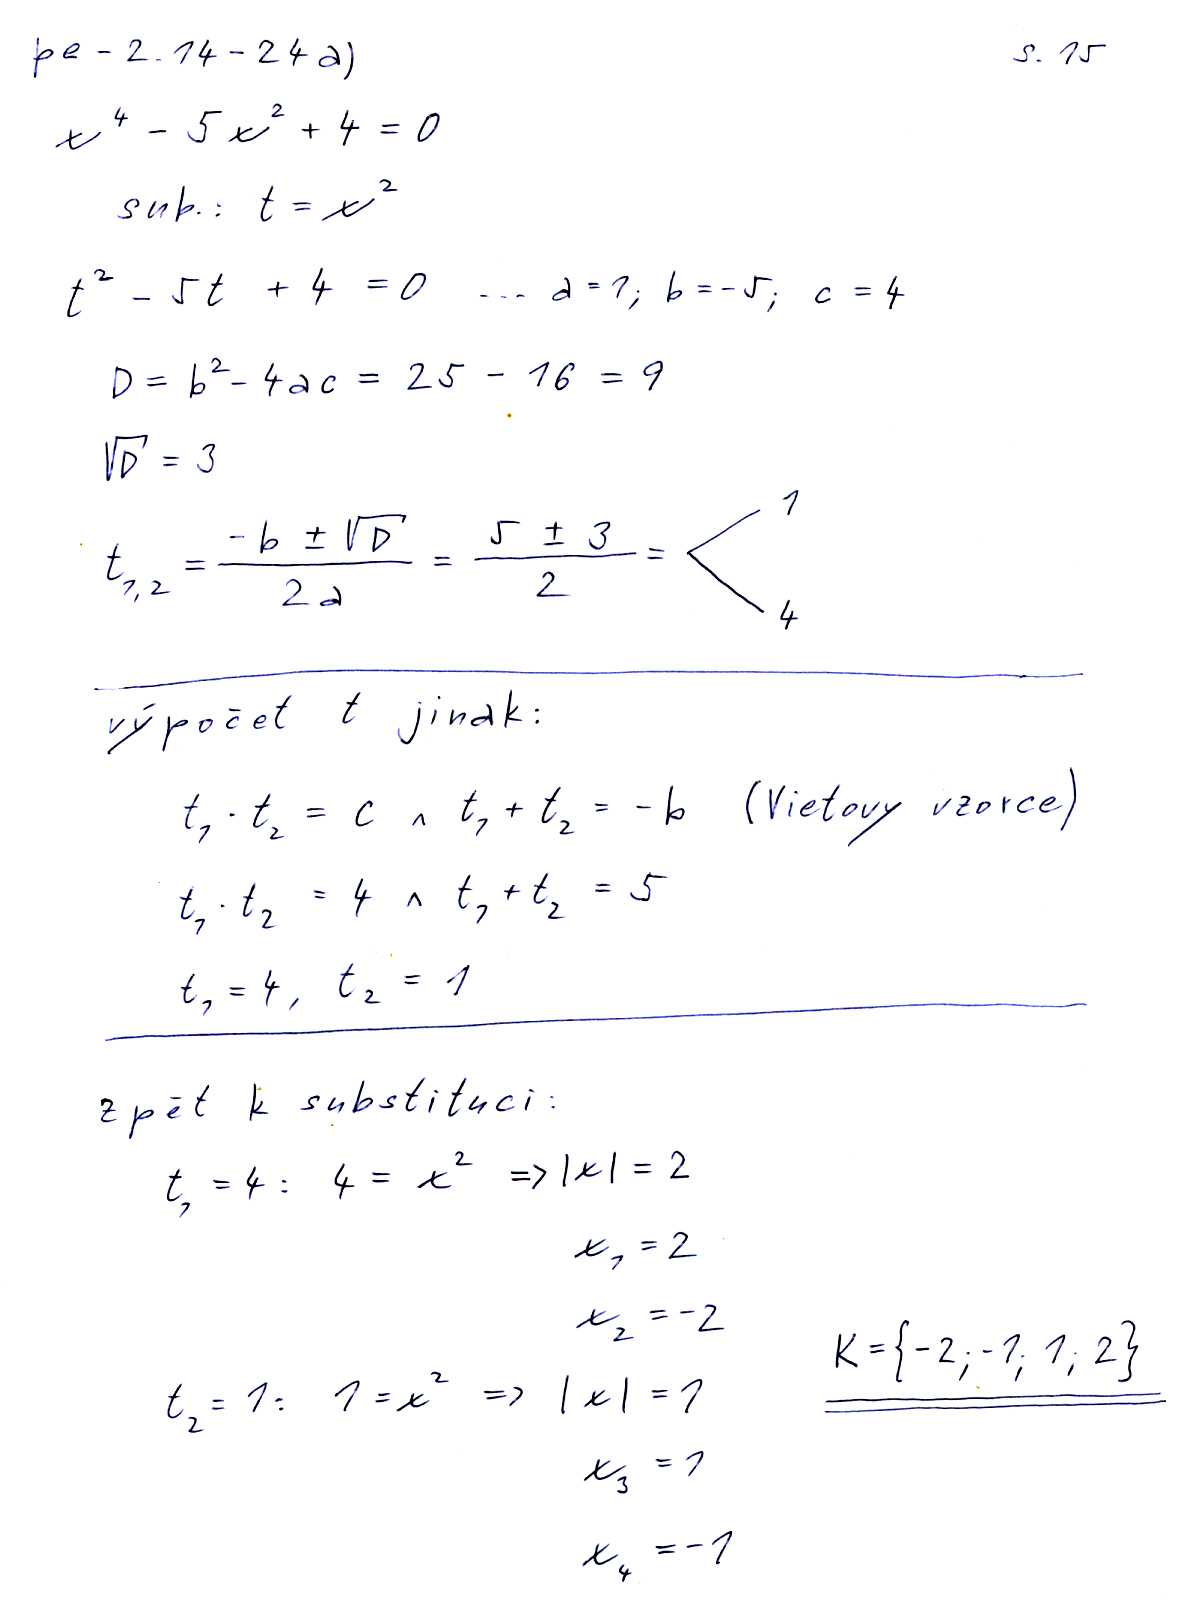 pe - 2.14 - 24 a) s. 15
x⁴ - 5x² + 4 = 0
sub.: t = x²
t² - 5t + 4 = 0 ... a = 1; b = -5; c = 4
D = b² - 4ac = 25 - 16 = 9
√D = 3
t₁,₂ = (-b ± √D)/(2a) = (5 ± 3)/2 = < 1 4
výpočet t jinak:
t₁ · t₂ = c ∧ t₁ + t₂ = -b (Vietovy vzorce)
t₁ · t₂ = 4 ∧ t₁ + t₂ = 5
t₁ = 4, t₂ = 1
zpět k substituci:
t₁ = 4: 4 = x² => |x| = 2
x₁ = 2
x₂ = -2
K = {-2; -1; 1; 2}
t₂ = 1: 1 = x² => |x| = 1
x₃ = 1
x₄ = -1